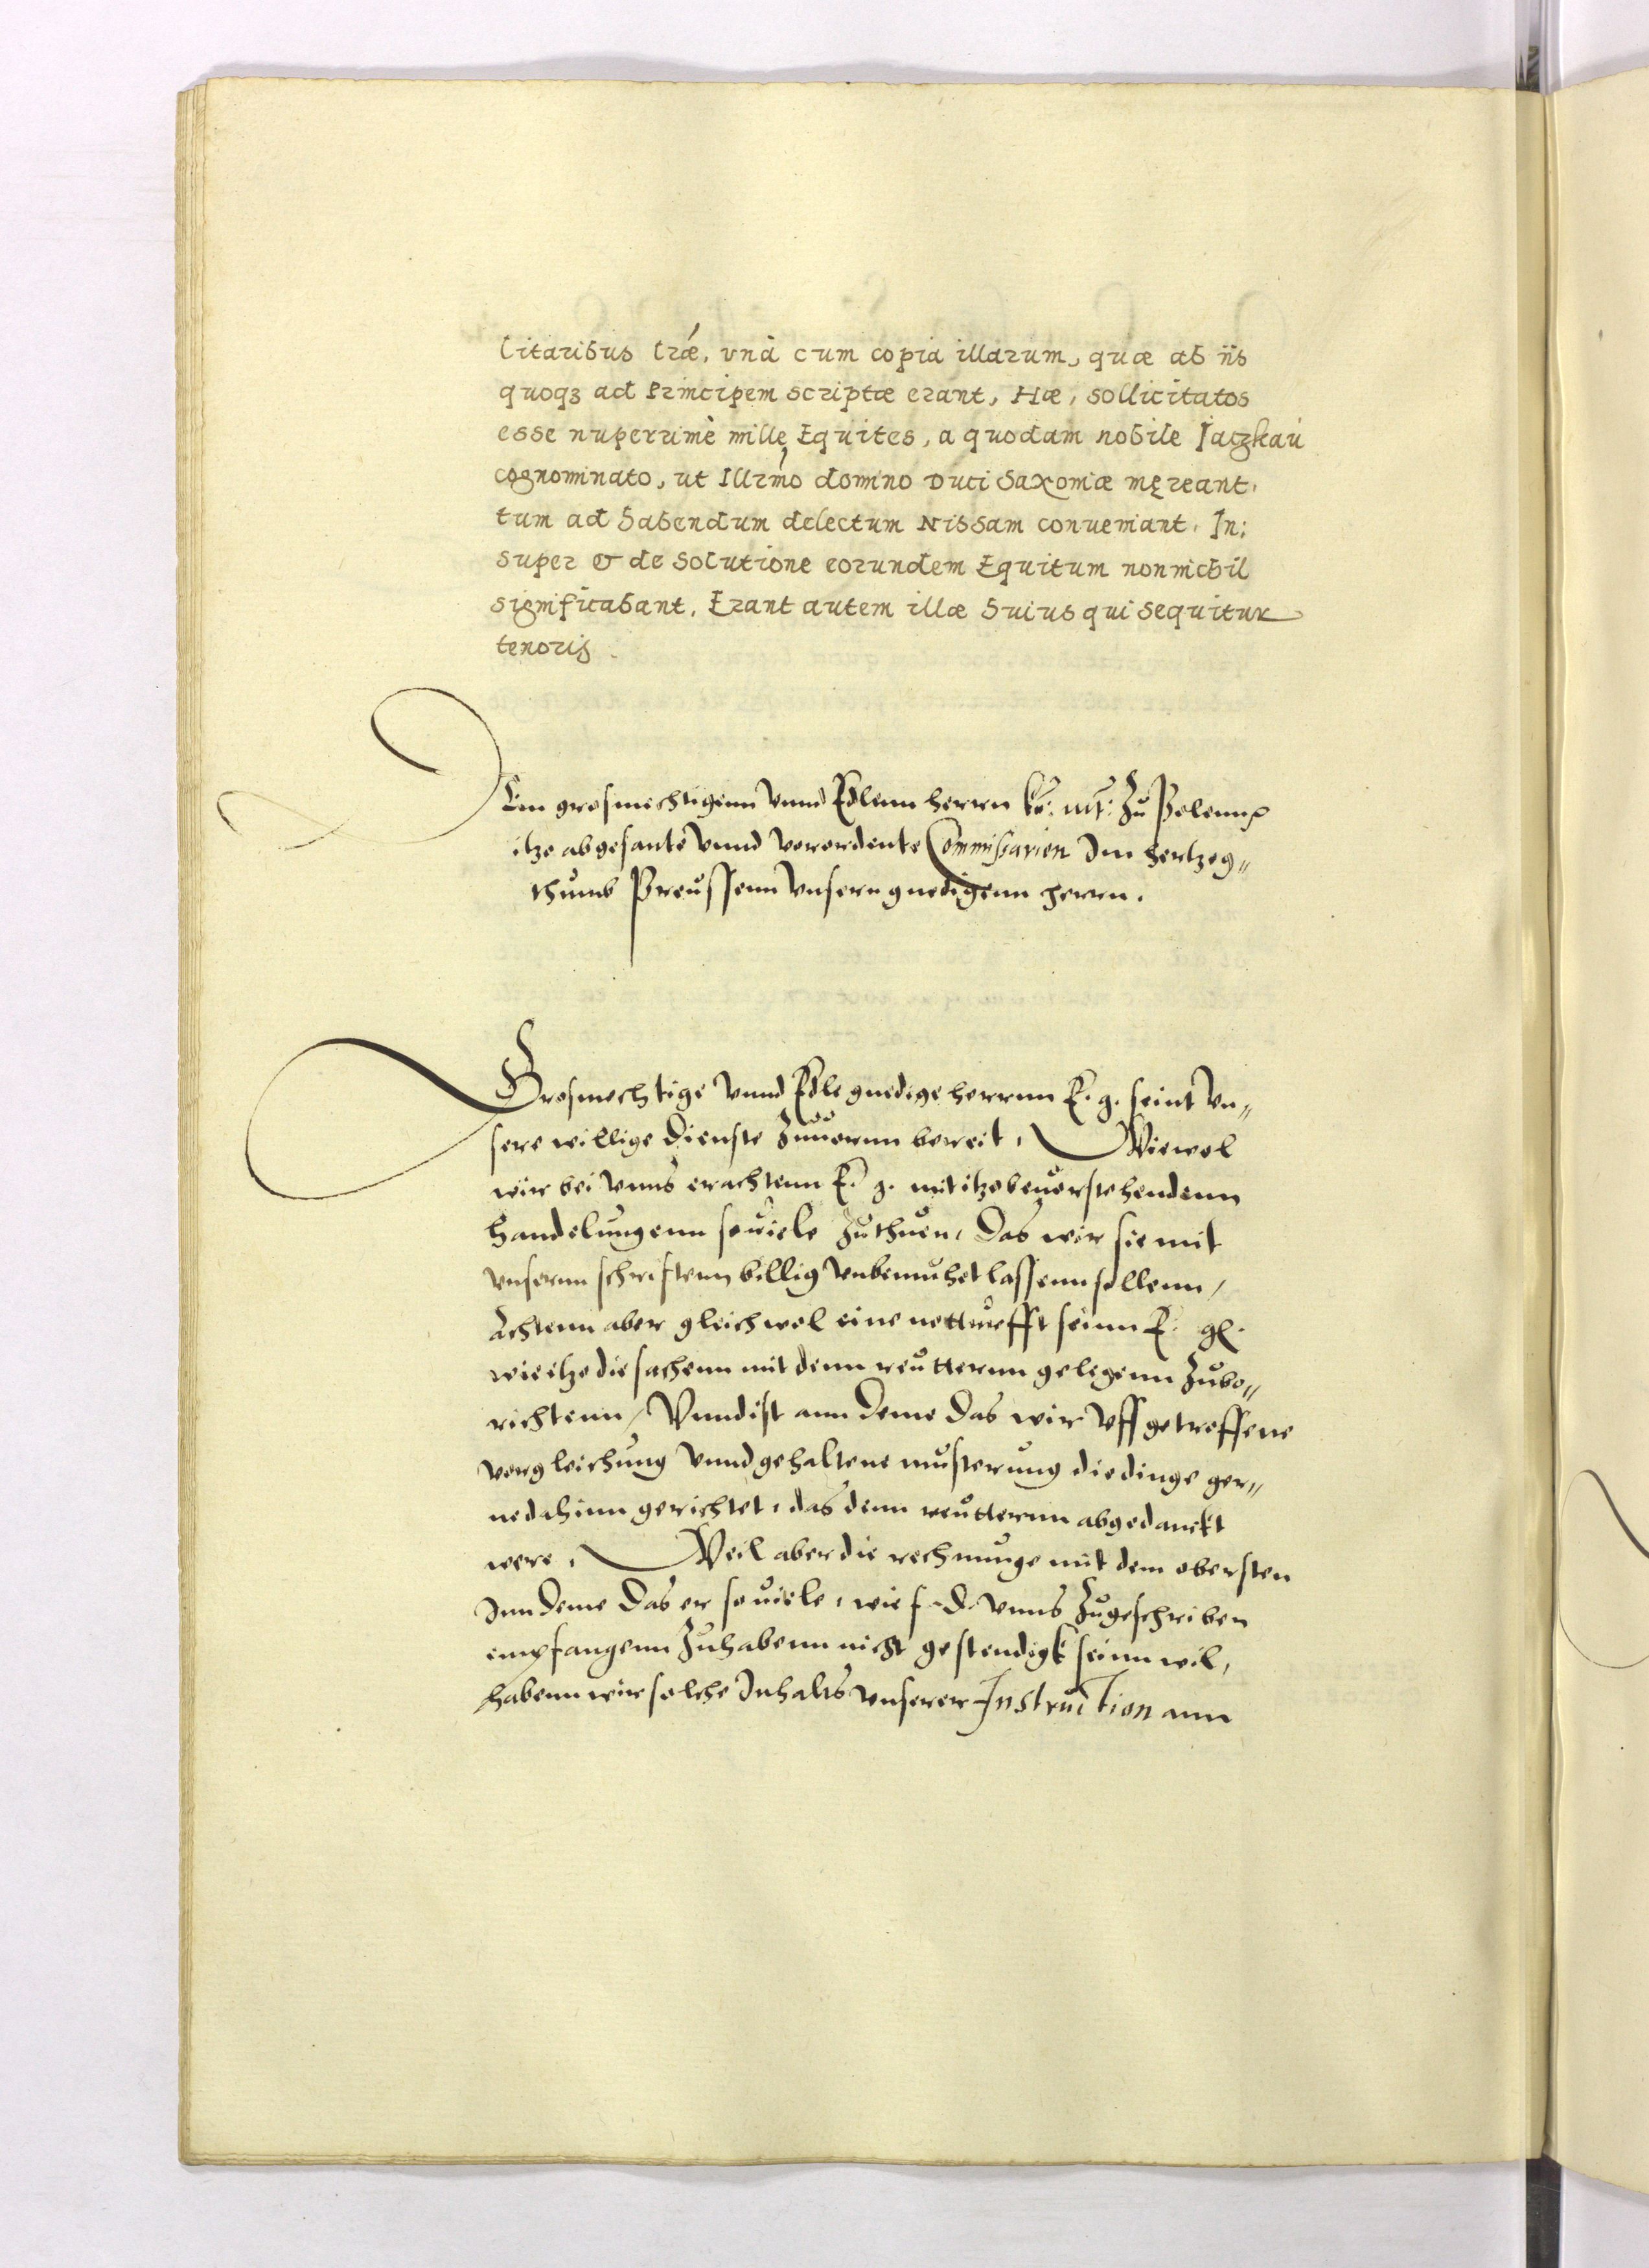 litaribus lræ, vnà cum copia illarum, quæ ab iis
quoqȝ ad Principem scriptæ erant, Hæ, sollicitatos
esse nuperrimè mille Equites, a quodam nobile Jatzkau
cognominato, ut Illrmo domino Duci Saxoniæ mereant,
tum ad habendum delectum Nissam conueniant. In:
super & de solutione eorundem Equitum nonnichil
significabant. Erant autem illæ huius qui sequitur
tenoris.
Den grosmechtigenn vnnd Edlenn herrn kr: mt: Zu Polennn
itzo abgesante vnnd verordente Commissarien Im hertzog„
thumb Preussenn vnsern gnedigenn herrn.
Grosmechtige vnnd Edle gnedige herrnn E. g. seint vn„
sere willige dienste Zuuornn bereit, Wiewol
wir bei vnns erachtenn E. g. mit itzo beuorstehendenn
handelungenn souiele Zuthuen, Das wir sie mit
vnsernn schrifftenn billig vnbemuhet lassenn sollenn,
Achtenn aber gleichwol eine notturfft seinn E. gl.
wie itzo die sachenn mit denn reutternn gelegenn Zube„
richtenn, Vnnd ist ann deme das wir vff getroffene
vergleichung vnnd gehaltene musterung die dinge ger„
ne dahinn gerichtet, das denn reutternn abgedanckt
were, Weil aber die rechnunge mit dem obersten
Inn deme Das er souiele, wie f. d. vnns Zugeschriben
empfangenn Zuhabenn nicht gestendigk seinn wil,
habenn wir solche Inhalts vnserer Instruction ann